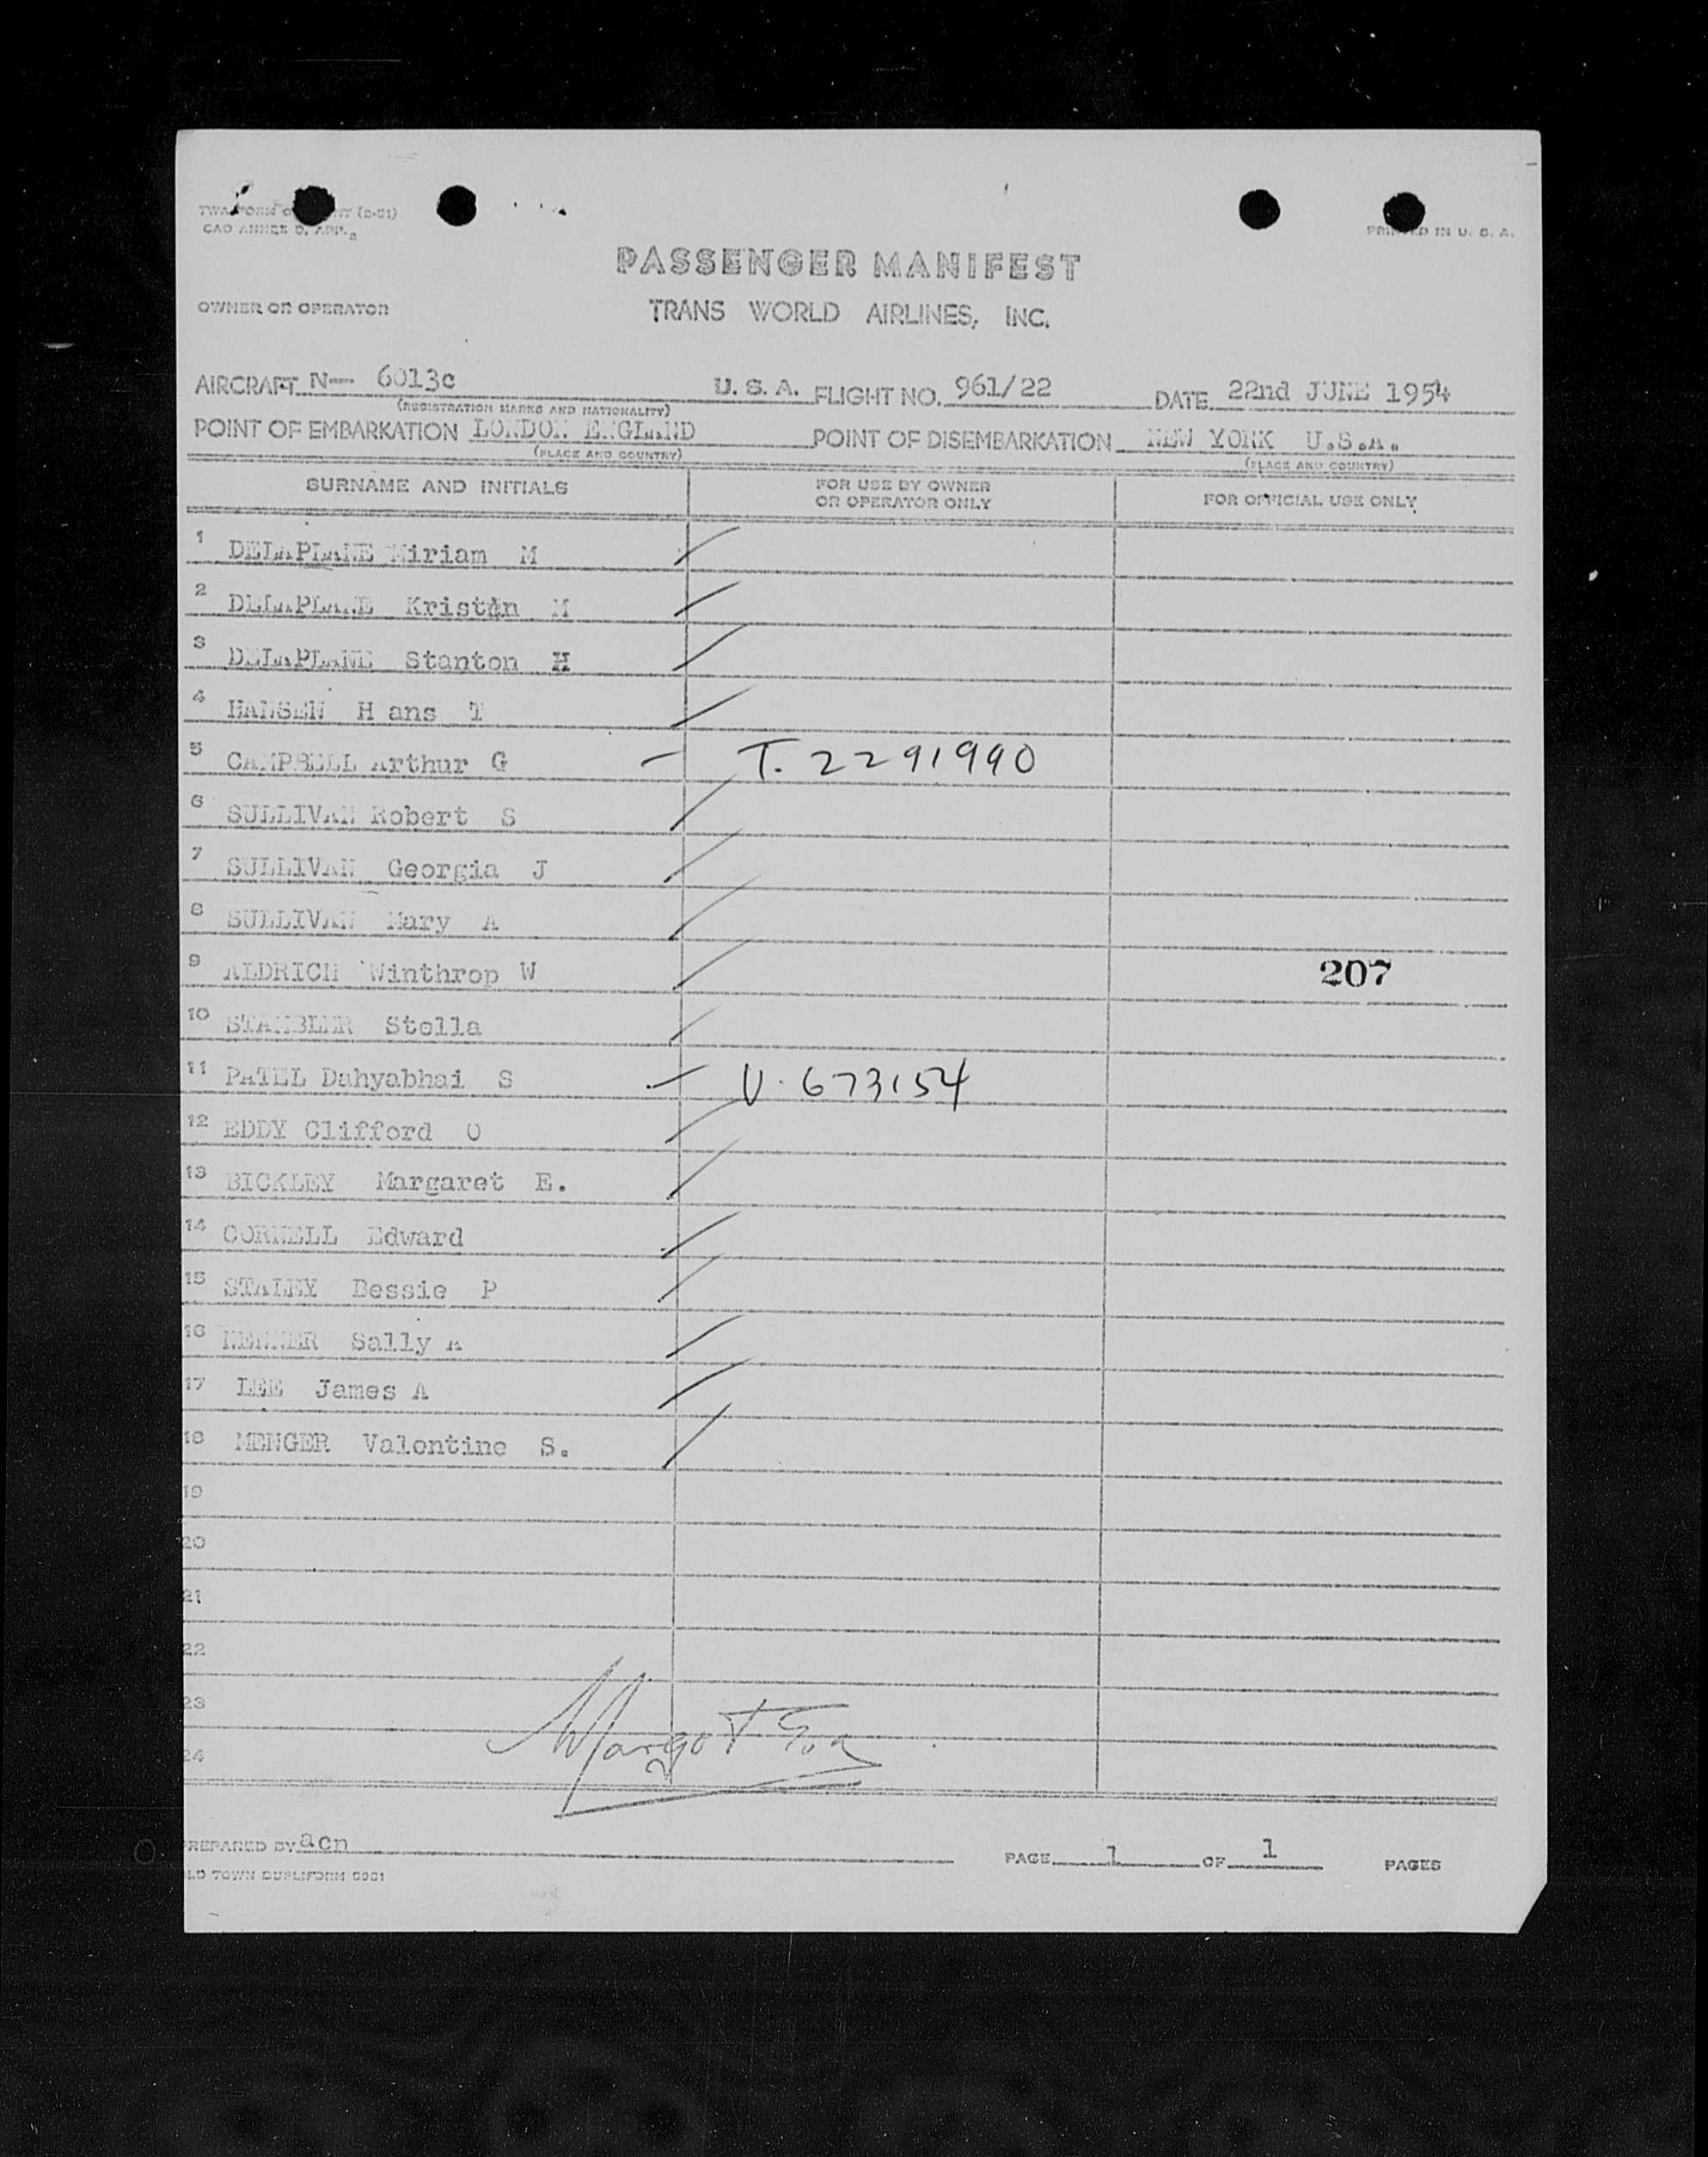 TWA FORM
CAO ANNEX 9, APP.
PRINTED IN U. S. A.
PASSENGER MANIFEST
OWNER OR OPERATOR TRANS WORLD AIRLINES, INC.
AIRCRAFT N-- 6013c U. S. A. FLIGHT NO. 961/22 DATE 22nd JUNE 1954
(REGISTRATION MARKS AND NATIONALITY)
POINT OF EMBARKATION LONDON ENGLAND POINT OF DISEMBARKATION NEW YORK U.S.A.
(PLACE AND COUNTRY) (PLACE AND COUNTRY)
SURNAME AND INITIALS FOR USE BY OWNER OR OPERATOR ONLY FOR OFFICIAL USE ONLY
1 DELAPLANE Miriam M
2 DELAPLANE Kristin M
3 DELAPLANE Stanton H
4 HANSEN H ans T
5 CAMPBELL Arthur G T. 2291990
6 SULLIVAN Robert S
7 SULLIVAN Georgia J
8 SULLIVAN Mary A
9 ALDRICH Winthrop W 207
10 STAMBLER Stella
11 PATEL Dahyabhai S V. 673154
12 EDDY Clifford O
13 BICKLEY Margaret E.
14 CORNELL Edward
15 STALEY Bessie P
16 Sally A
17 LEE James A
18 MENGER Valentine S.
19
20
21
22
23
24
Margot
PREPARED BY acn PAGE 1 OF 1 PAGES
OLD TOWN DUPLIFORM